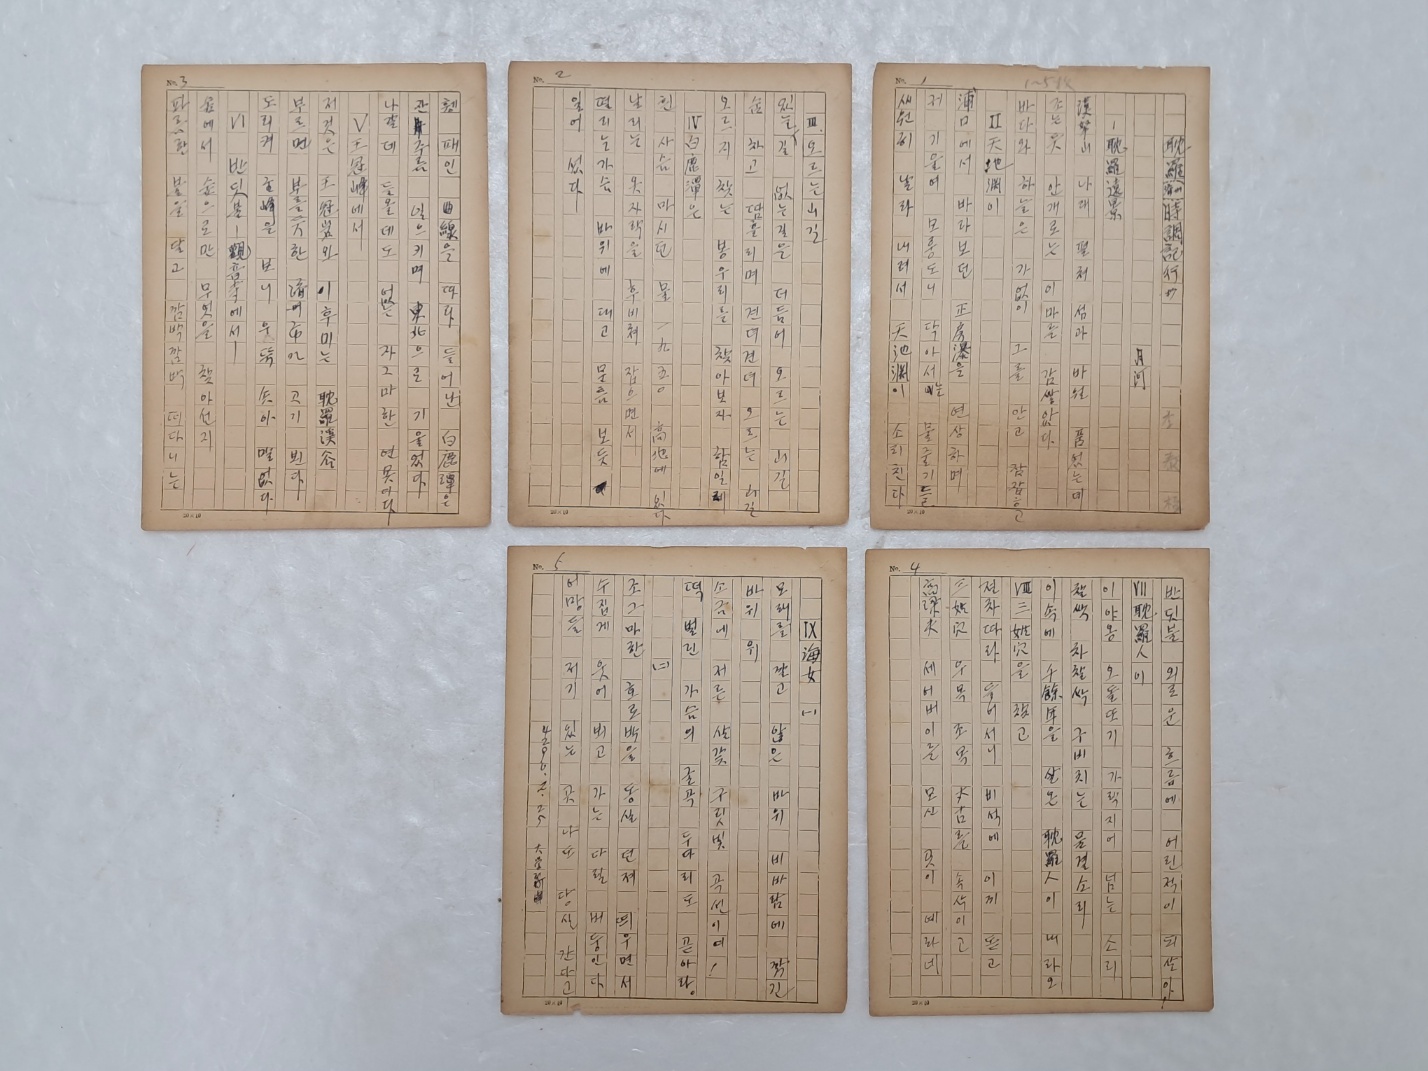 No. 1
耽羅時調記行
月河
I 耽羅遠景
漢拏山 나래 펼쳐 섬과 바원 품었는데
조는 옷 안개로는 이마를 감쌓았다.
바다와 하늘은 가없이 그를 안고 잠잠ㅎ고
II 天池淵이
浦口에서 바다 보던 正房瀑을 연상하며
저 기울여 모롱도니 닥아서는 물줄기들
새원히 날라 내려서 天池淵이 소리친다
No. 2
III. 오르는 山길
있는 길 없는 길을 더듬어 오르는 山길
숨 차고 땀흘리며 견뎌견뎌 오르는 山길
오르지 찾는 봉우리를 찾아보자 함일레
IV 白鹿潭은
흰 사슴 마시던 물 一九五〇 高地에 있다
날리는 옷자락을 후비쳐 잡으면서
떨리는 가슴 바위에 대고 문틈 보듯
일어 섰다.
No. 3
휑 패인 曲線을 따라 들어난 白鹿潭은
잔주름 일으키며 東北으로 기울었다
나갈데 들올데도 없는 자그마한 연못이다
V 王冠峰에서
저것은 王冠岩와 이 후미는 耽羅溪谷
부르면 부를듯한 濟州市는 고기 뵌다
도리켜 主峰을 보니 웃뚝 솟아 말없다
VI 반딧불 —觀音寺에서—
숲에서 숲으로만 무엇을 찾아선지
파르란 불을 달고 깜박깜박 떠다니는
No. 4
반딧불 외로운 흐름에 어린적이 되살아
VII 耽羅人이
이야옹 오돌또기 가락지어 넘는 소리
찰싹 차찰싹 구비치는 물결소리
이 속에 千餘年을 살은 耽羅人이 내라오
VIII 三姓穴을 찾고
전차따라 들어서니 비석에 이끼 돋고
三姓穴 우묵 조묵 太古를 속삭이고
高梁夫 세 어버이를 모신 곳이 예라네
No. 5
IX 海女 (一)
모래를 깔고 앉은 바위 비바람에 깎긴
바위 위
소금에 저른 살갗 구릿빛 곡선이여!
떡 벌린 가슴의 굴곡 두다리도 곧아라.
(二)
조그마한 호로박을 동실 던져 띄우면서
수집게 웃어 뵈고 가는 다릴 버둥인다
어망들 저기 있는 곳 나도 당실 간다고